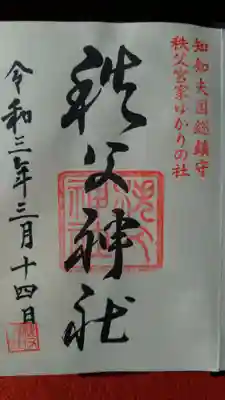 知知夫国総鎮守
秩父宮家ゆかりの社
秩父神社
令和三年三月十四日